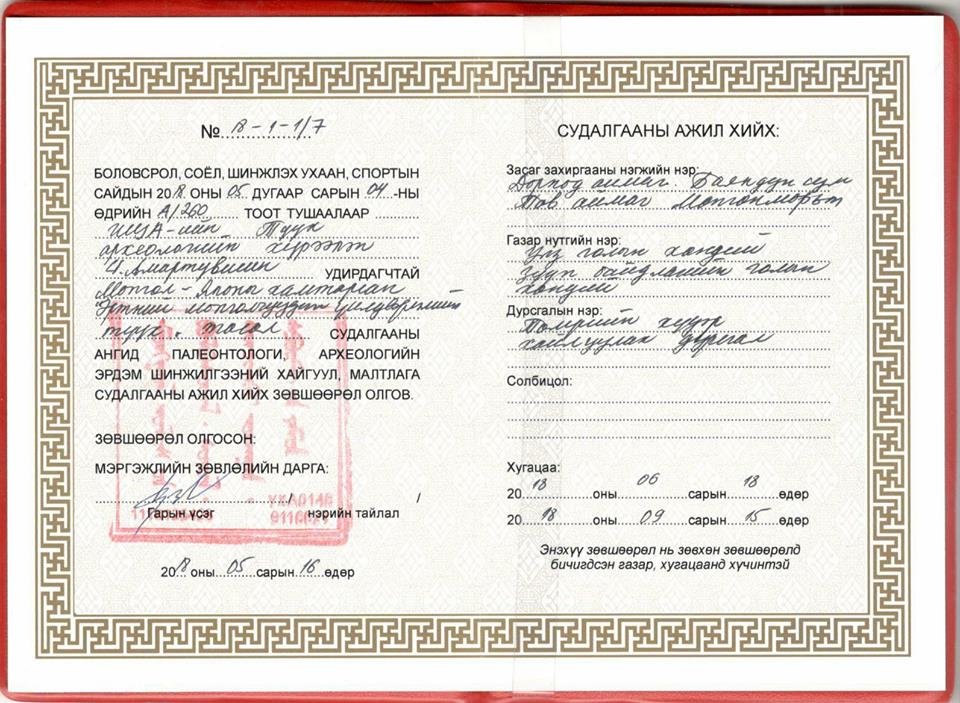 № А-1-1/7
БОЛОВСРОЛ, СОЁЛ, ШИНЖЛЭХ УХААН, СПОРТЫН
САЙДЫН 2018 ОНЫ 05 ДУГААР САРЫН 04 -НЫ
ӨДРИЙН А/260 ТООТ ТУШААЛААР
ШУА-ийн Түүх
археологийн хүрээлэн
Ч.Амартүвшин УДИРДАГЧТАЙ
Монгол-Японы хамтарсан
Эртний монголчуудын үйлдвэрлэлийн
түүх, төсөл СУДАЛГААНЫ
АНГИД ПАЛЕОНТОЛОГИ, АРХЕОЛОГИЙН
ЭРДЭМ ШИНЖИЛГЭЭНИЙ ХАЙГУУЛ, МАЛТЛАГА
СУДАЛГААНЫ АЖИЛ ХИЙХ ЗӨВШӨӨРӨЛ ОЛГОВ.
ЗӨВШӨӨРӨЛ ОЛГОСОН:
МЭРГЭЖЛИЙН ЗӨВЛӨЛИЙН ДАРГА:
/ /
Гарын үсэг нэрийн тайлал
2018 оны 05 сарын 16 өдөр
СУДАЛГААНЫ АЖИЛ ХИЙХ:
Засаг захиргааны нэгжийн нэр:
Дорнод аймаг. Баяндун сум
Төв аймаг Мөнгөнморьт
Газар нутгийн нэр:
Улз голын хөндий
Зүүн байдлагийн голын
хөндий
Дурсгалын нэр:
Төмрийн хүдэр
хайлуулах дурсгал
Солбицол:
Хугацаа:
2018 оны 06 сарын 18 өдөр
2018 оны 09 сарын 15 өдөр
Энэхүү зөвшөөрөл нь зөвхөн зөвшөөрөлд
бичигдсэн газар, хугацаанд хүчинтэй